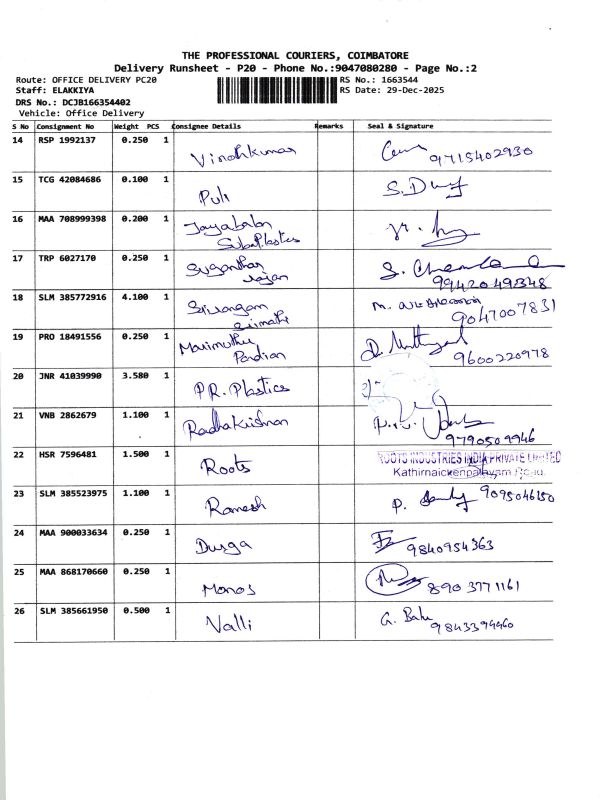 THE PROFESSIONAL COURIERS, COIMBATORE
Delivery Runsheet - P20 - Phone No.:9047080280 - Page No.:2
Route: OFFICE DELIVERY PC20 RS No.: 1663544
Staff: ELAKKIYA RS Date: 29-Dec-2025
DRS No.: DCJB166354402
Vehicle: Office Delivery
S No Consignment No Weight PCS Consignee Details Remarks Seal & Signature
14 RSP 1992137 0.250 1 Vinothkumar 9715402930
15 TCG 42084686 0.100 1 Puli
16 MAA 708999398 0.200 1 Jayabalan
Plastics
17 TRP 6027170 0.250 1 Suganthar S.
rajan 9942049348
18 SLM 385772916 4.100 1 Srirangam M.
Srimathi 9047007831
19 PRO 18491556 0.250 1 Marimuthu
Pandian 9600220978
20 JNR 41039990 3.580 1 P.R. Plastics
21 VNB 2862679 1.100 1 Radhakrishnan
9790509946
22 HSR 7596481 1.500 1 Roots ROOTS INDUSTRIES INDIA PRIVATE LIMITED
Kathirnaickenpalayam Road.
23 SLM 385523975 1.100 1 Ramesh P. 9095046150
24 MAA 900033634 0.250 1 Durga 9840954363
25 MAA 868170660 0.250 1 Manoj 8903771161
26 SLM 385661950 0.500 1 Valli G. Balu
9843394460